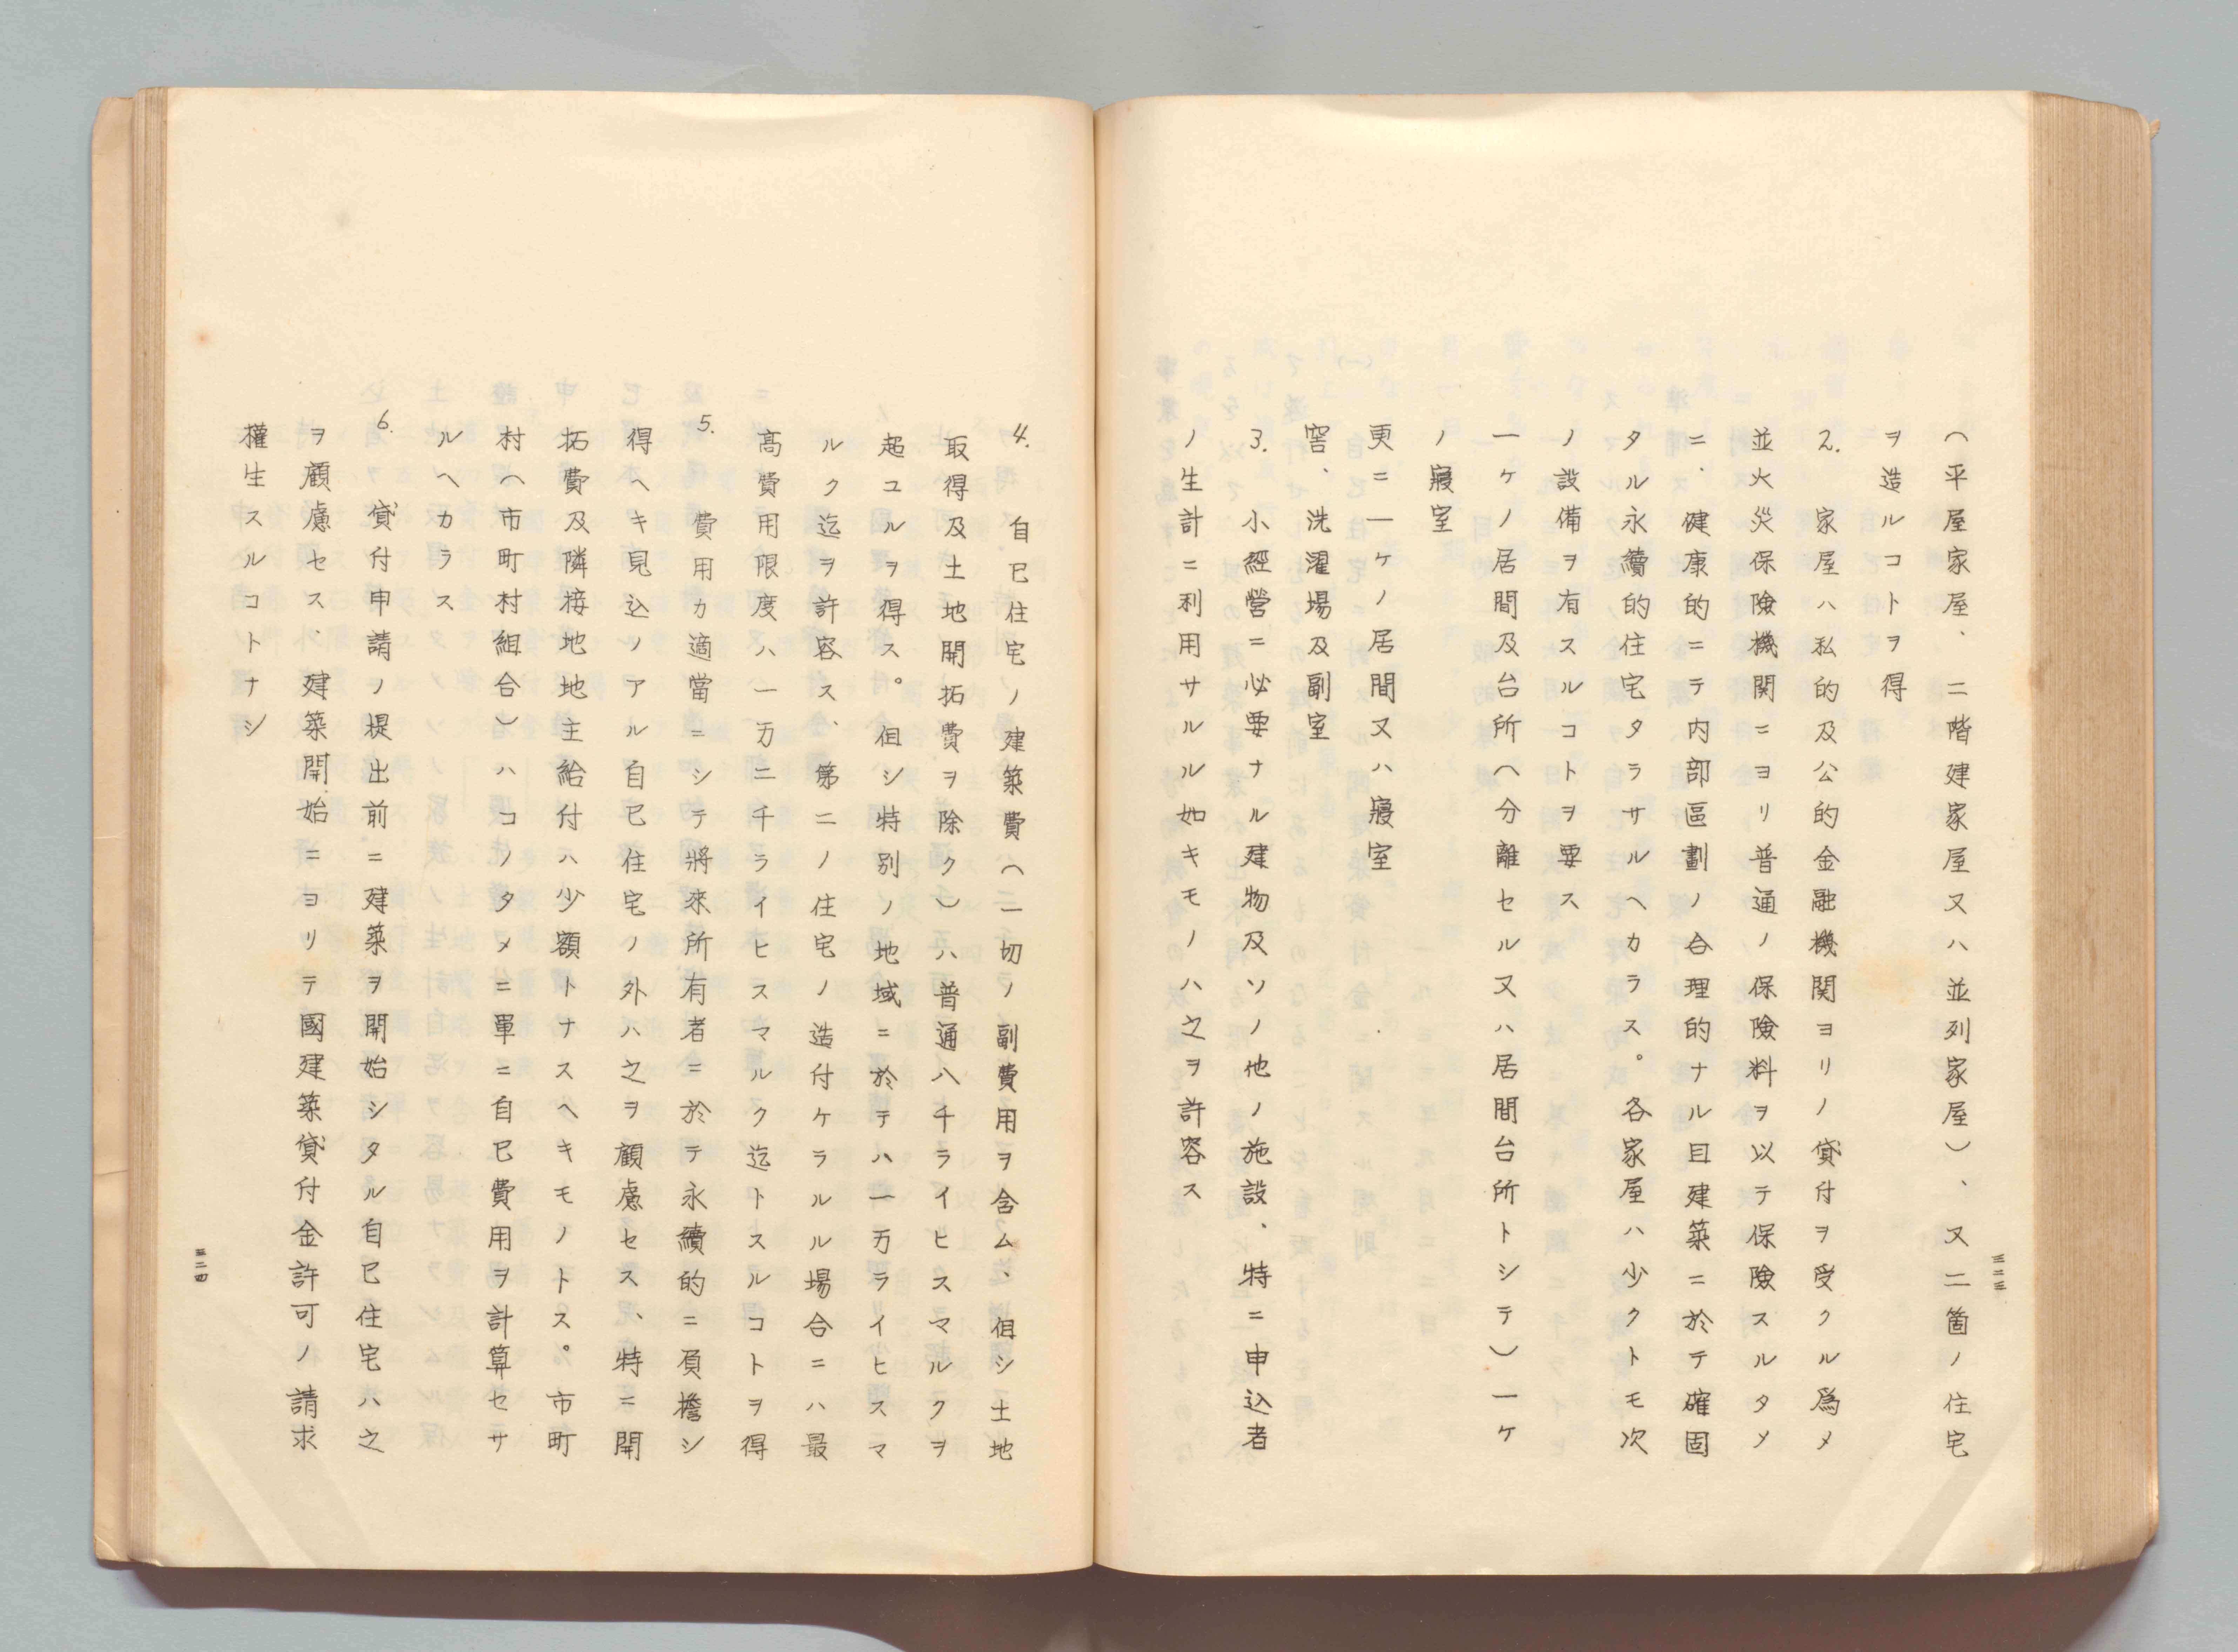 (平屋家屋、二階建家屋又ハ並列家屋)、又二箇ノ住宅
ヲ造ルコトヲ得
2. 家屋ハ私的及公的金融機関ヨリノ貸付ヲ受クル爲メ
並火災保險機関ニヨリ普通ノ保險料ヲ以テ保險スルタメ
ニ、健康的ニテ内部區劃ノ合理的ナル且建築ニ於テ確固
タル永續的住宅タラサルヘカラス。各家屋ハ少クトモ次
ノ設備ヲ有スルコトヲ要ス
一ケノ居間及台所(分離セル又ハ居間台所トシテ)一ケ
ノ寢室
更ニ一ケノ居間又ハ寢室
窖、洗濯場及副室
3. 小經營ニ必要ナル建物及ソノ他ノ施設、特ニ申込者
ノ生計ニ利用サルル如キモノハ之ヲ許容ス
三二三
4. 自己住宅ノ建築費(一切ノ副費用ヲ含ム、但シ土地
取得及土地開拓費ヲ除ク)ハ普通八千ライヒスマルクヲ
超ユルヲ得ス。但シ特別ノ地域ニ於テハ一万ライヒスマ
ルク迄ヲ許容ス、第二ノ住宅ノ造付ケラルル場合ニハ最
高費用限度ハ一万二千ライヒスマルク迄トスルコトヲ得
5. 費用カ適當ニシテ將來所有者ニ於テ永續的ニ負擔シ
得ヘキ見込ノアル自己住宅ノ外ハ之ヲ顧慮セス、特ニ開
拓費及隣接地地主給付ハ少額トナスヘキモノトス。市町
村(市町村組合)ハコノタメニ單ニ自己費用ヲ計算セサ
ルヘカラス
6. 貸付申請ノ提出前ニ建築ヲ開始シタル自己住宅ハ之
ヲ顧慮セス、建築開始ニヨリテ國建築貸付金許可ノ請求
權生スルコトナシ
三二四